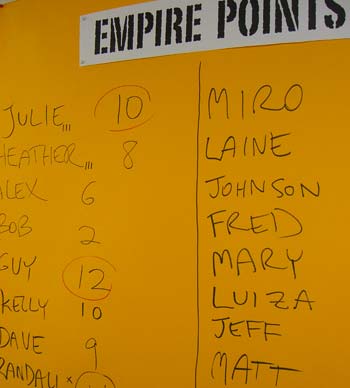 EMPIRE POINTS
JULIE 10
HEATHER 8
ALEX 6
BOB 2
GUY 12
KELLY 10
DAVE 9
RANDALL
MIRO
LAINE
JOHNSON
FRED
MARY
LUIZA
JEFF
MATT